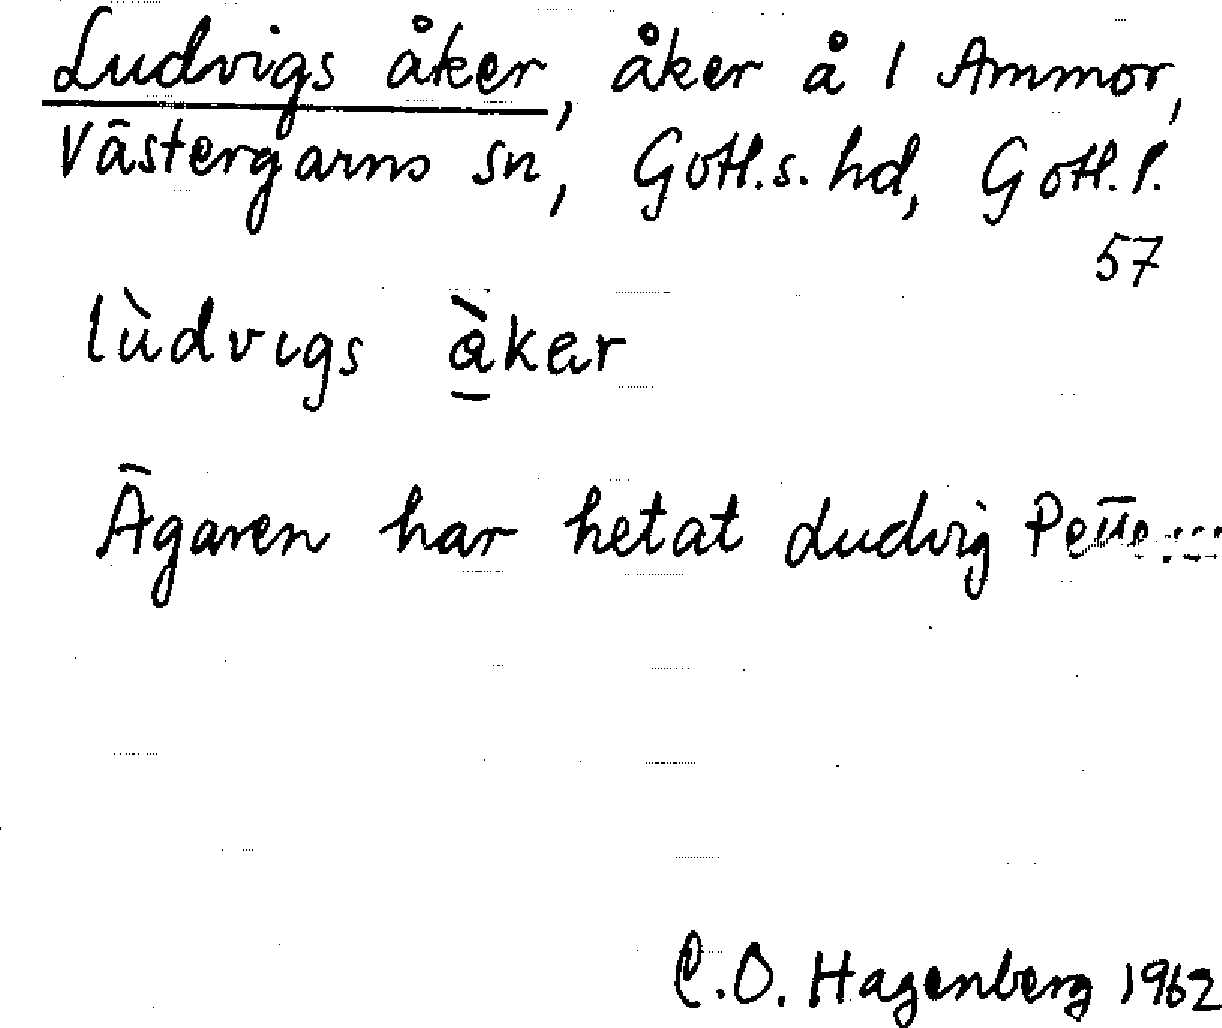 Ludvigs åker, åker å 1 Ammor,
Västergarns sn, Gotl.s. hd, Gotl. l.
57
lùdvıgs àkar
Ägaren har hetat Ludvig
C.O. Hagenberg 1962